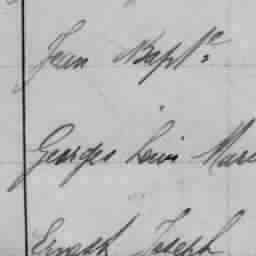 Jean Bapte
Georges Louis Marc
Ernest Joseph